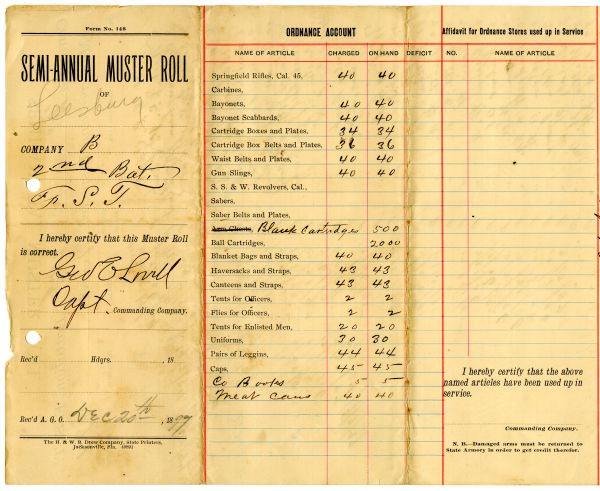 Form No. 148
SEMI-ANNUAL MUSTER ROLL
OF
Leesburg
COMPANY B
2nd Bat.
Fla. S. T.
I hereby certify that this Muster Roll
is correct.
Geo E Lovell
Capt. Commanding Company.
Rec'd Hdqrs. , 18
Rec'd A. G. O. Dec 20th, 1897
The H. & W. B. Drew Company, State Printers,
Jacksonville, Fla.
ORDNANCE ACCOUNT
NAME OF ARTICLE CHARGED ON HAND DEFICIT
Springfield Rifles, Cal. 45, 40 40
Carbines,
Bayonets, 40 40
Bayonet Scabbards, 40 40
Cartridge Boxes and Plates, 34 34
Cartridge Box Belts and Plates, 36 36
Waist Belts and Plates, 40 40
Gun Slings, 40 40
S. S. & W. Revolvers, Cal.,
Sabers,
Saber Belts and Plates,
Arm Chests, Blank Cartridges 500
Ball Cartridges, 2000
Blanket Bags and Straps, 40 40
Haversacks and Straps, 43 43
Canteens and Straps, 43 43
Tents for Officers, 2 2
Flies for Officers, 2 2
Tents for Enlisted Men, 20 20
Uniforms, 30 30
Pairs of Leggins, 44 44
Caps, 45 45
Co Books 5 5
Meat Cans 40 40
Affidavit for Ordnance Stores used up in Service
NO. NAME OF ARTICLE
I hereby certify that the above
named articles have been used up in
service.
Commanding Company.
N. B.—Damaged arms must be returned to
State Armory in order to get credit therefor.